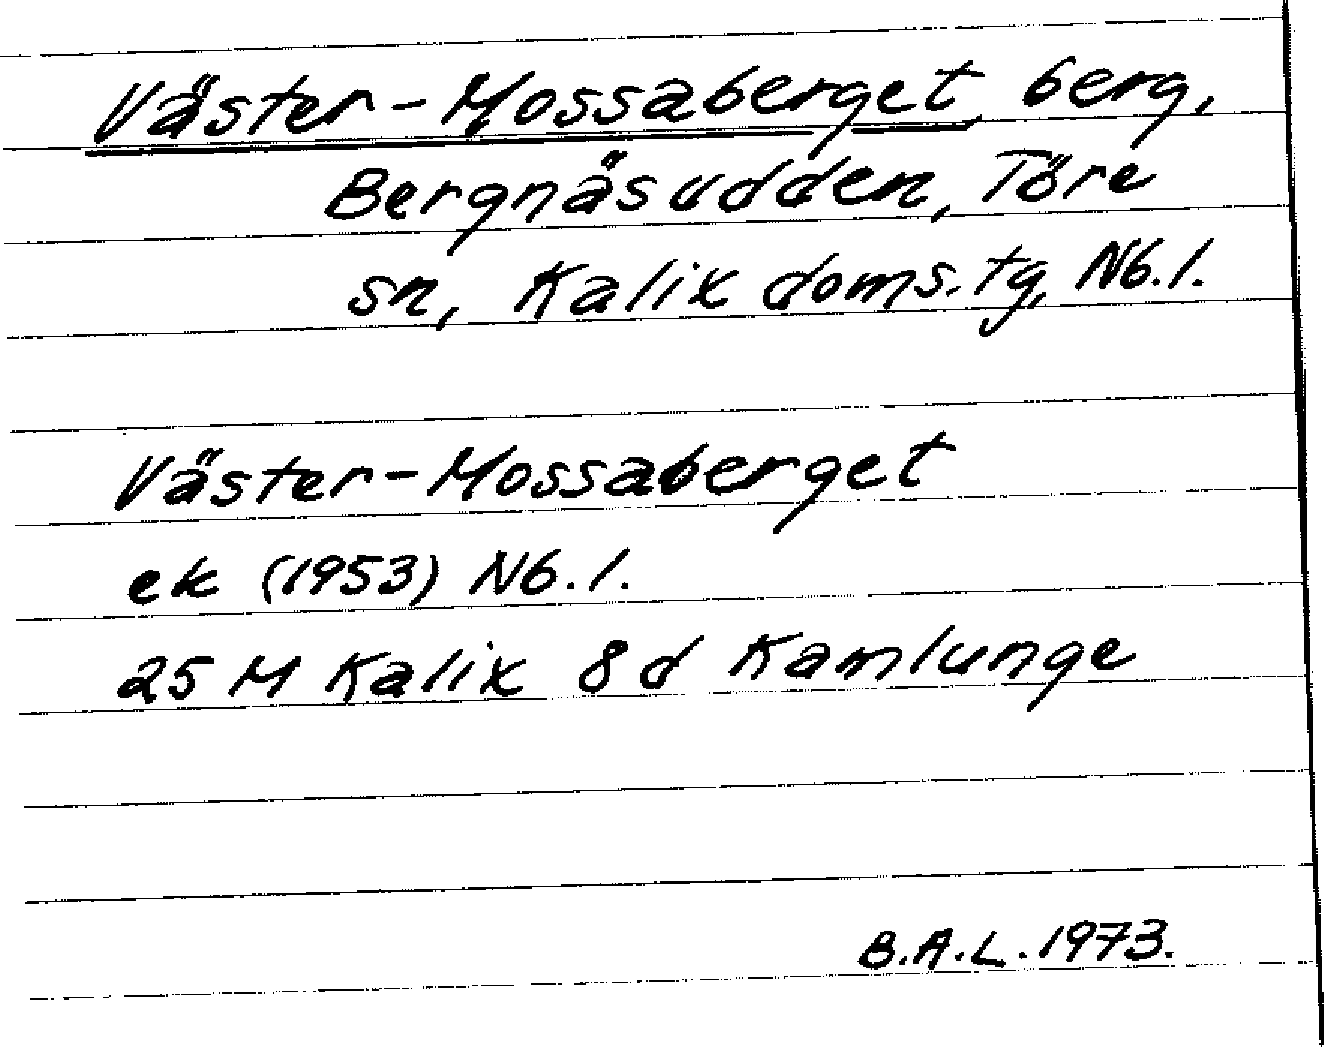 Väster-Mossaberget, berg,
Bergnäsudden, Töre
sn, Kalix doms.tg, Nb.l.
Väster-Mossaberget
ek (1953) Nb.l.
25 M Kalix 8d Kamlunge
B.A.L. 1973.